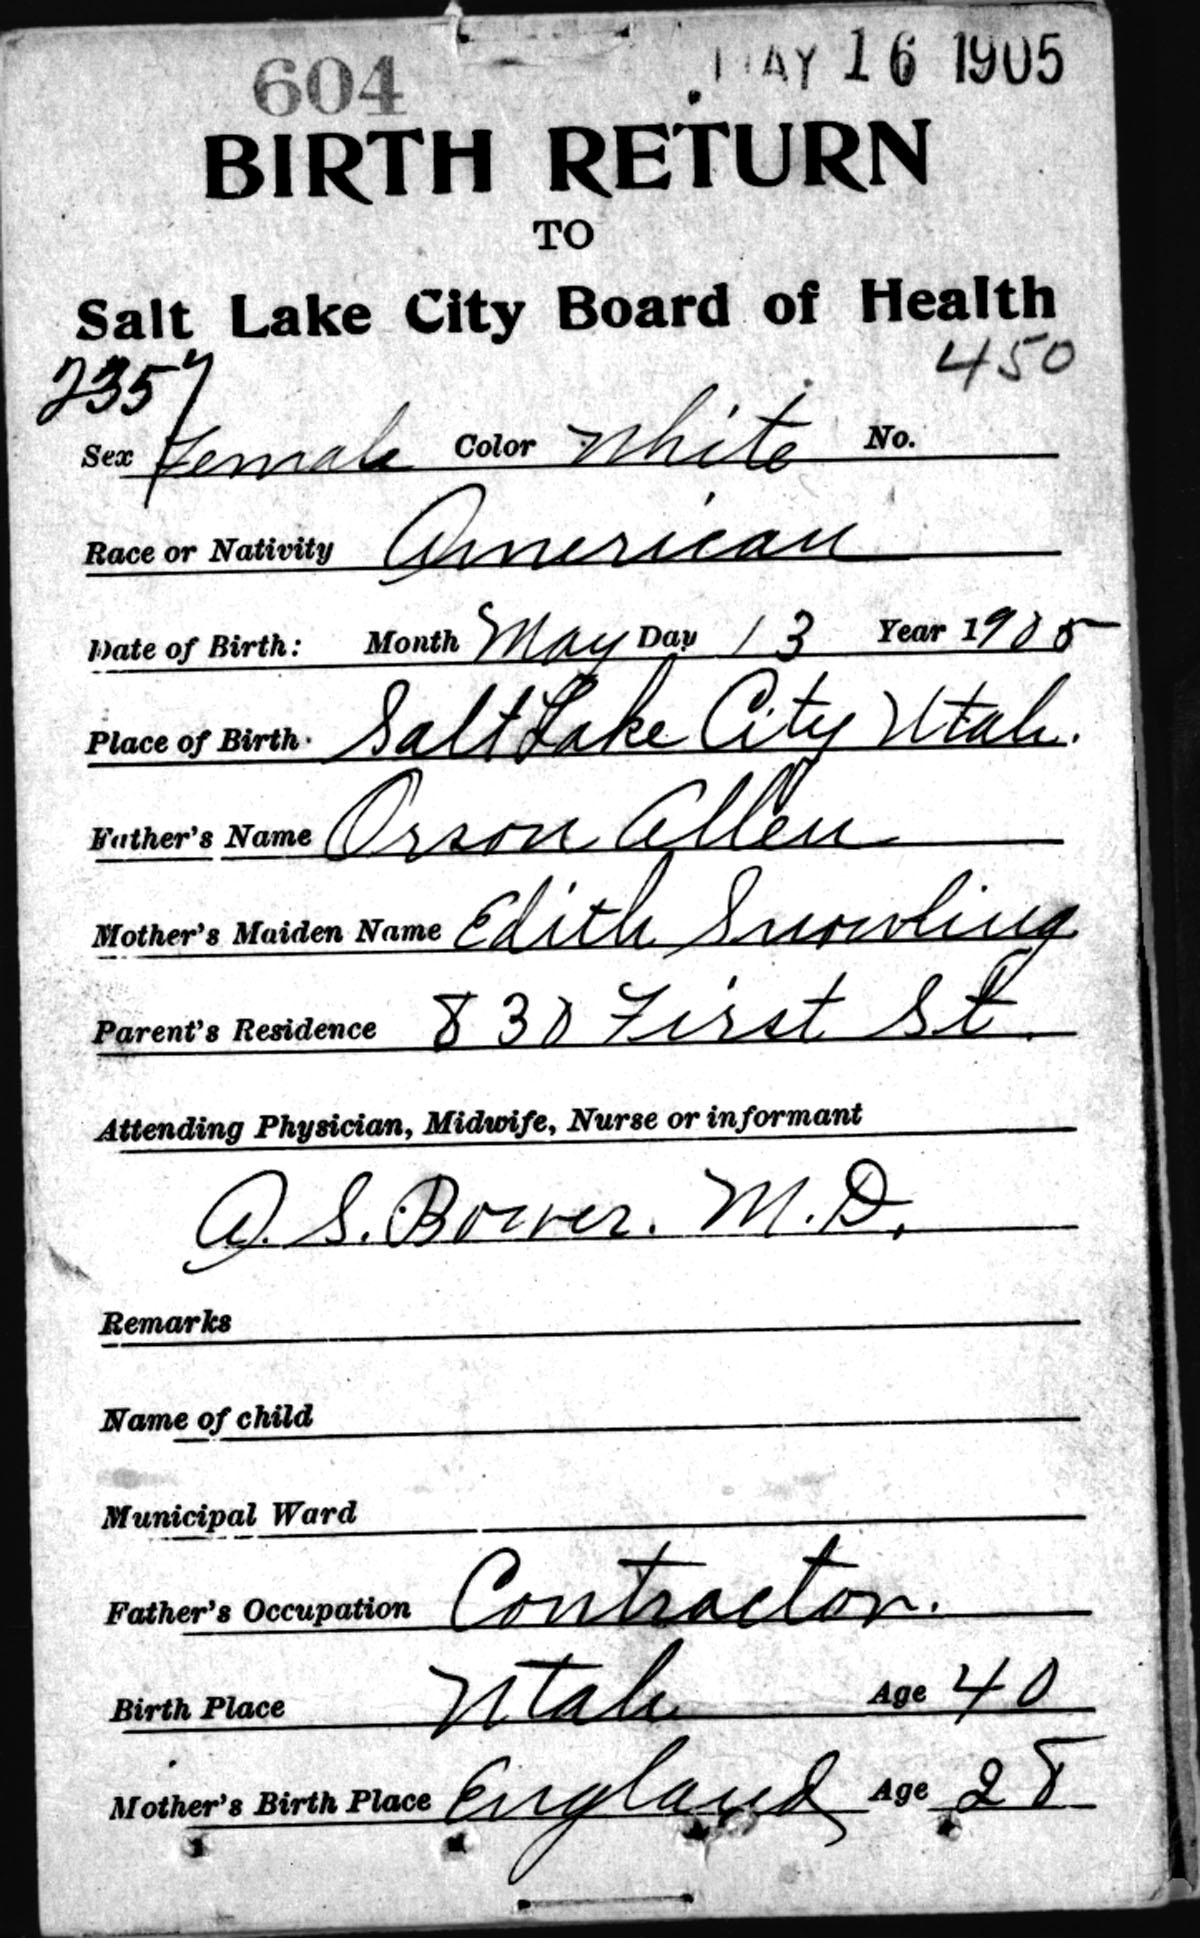 604 MAY 16 1905
BIRTH RETURN
TO
Salt Lake City Board of Health
2357 450
Sex Female Color White No.
Race or Nativity American
Date of Birth: Month May Day 13 Year 1905
Place of Birth. Salt Lake City Utah.
Father's Name Orson Allen
Mother's Maiden Name Edith Snowling
Parent's Residence 830 First St.
Attending Physician, Midwife, Nurse or informant
A. S. Bower. M.D.
Remarks
Name of child
Municipal Ward
Father's Occupation Contractor.
Birth Place Utah Age 40
Mother's Birth Place England Age 28